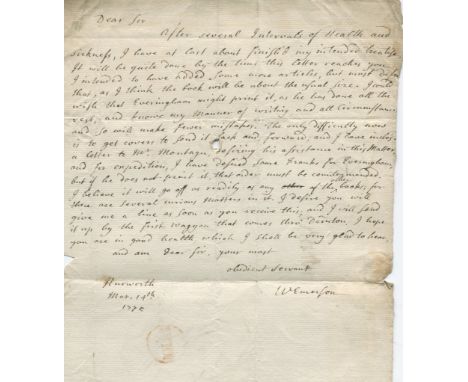 Dear Sir
After several Intervals of Health and
Sickness, I have at last about finish'd my intended treatise.
It will be quite done by the time this letter reaches you.
I intended to have added some more articles, but must
that, as I think the book will be about the usual size. I could
wish that Everingham might print it, as he has done all the
rest, and knows my Manner of writing and all Circumstances
and so will make fewer mistakes. The only difficulty now
is to get covers to send it up and forward, and I have inclos'd
a letter to Mr. Montagu, desiring his assistance in this Matter
and for expedition, I have desired some Franks for Everingham,
but if he does not print it that order must be countermanded.
I believe it will go off as readily as any other of the books, for
there are several curious Matters in it. I desire you will
give me a line as soon as you receive this, and I will send
it up by the first waggon that comes thro Darnton. I hope
you are in good health which I shall be very glad to hear,
and am Dear Sir, your most
obedient servant
Hurworth
Mar. 14th
WEmerson